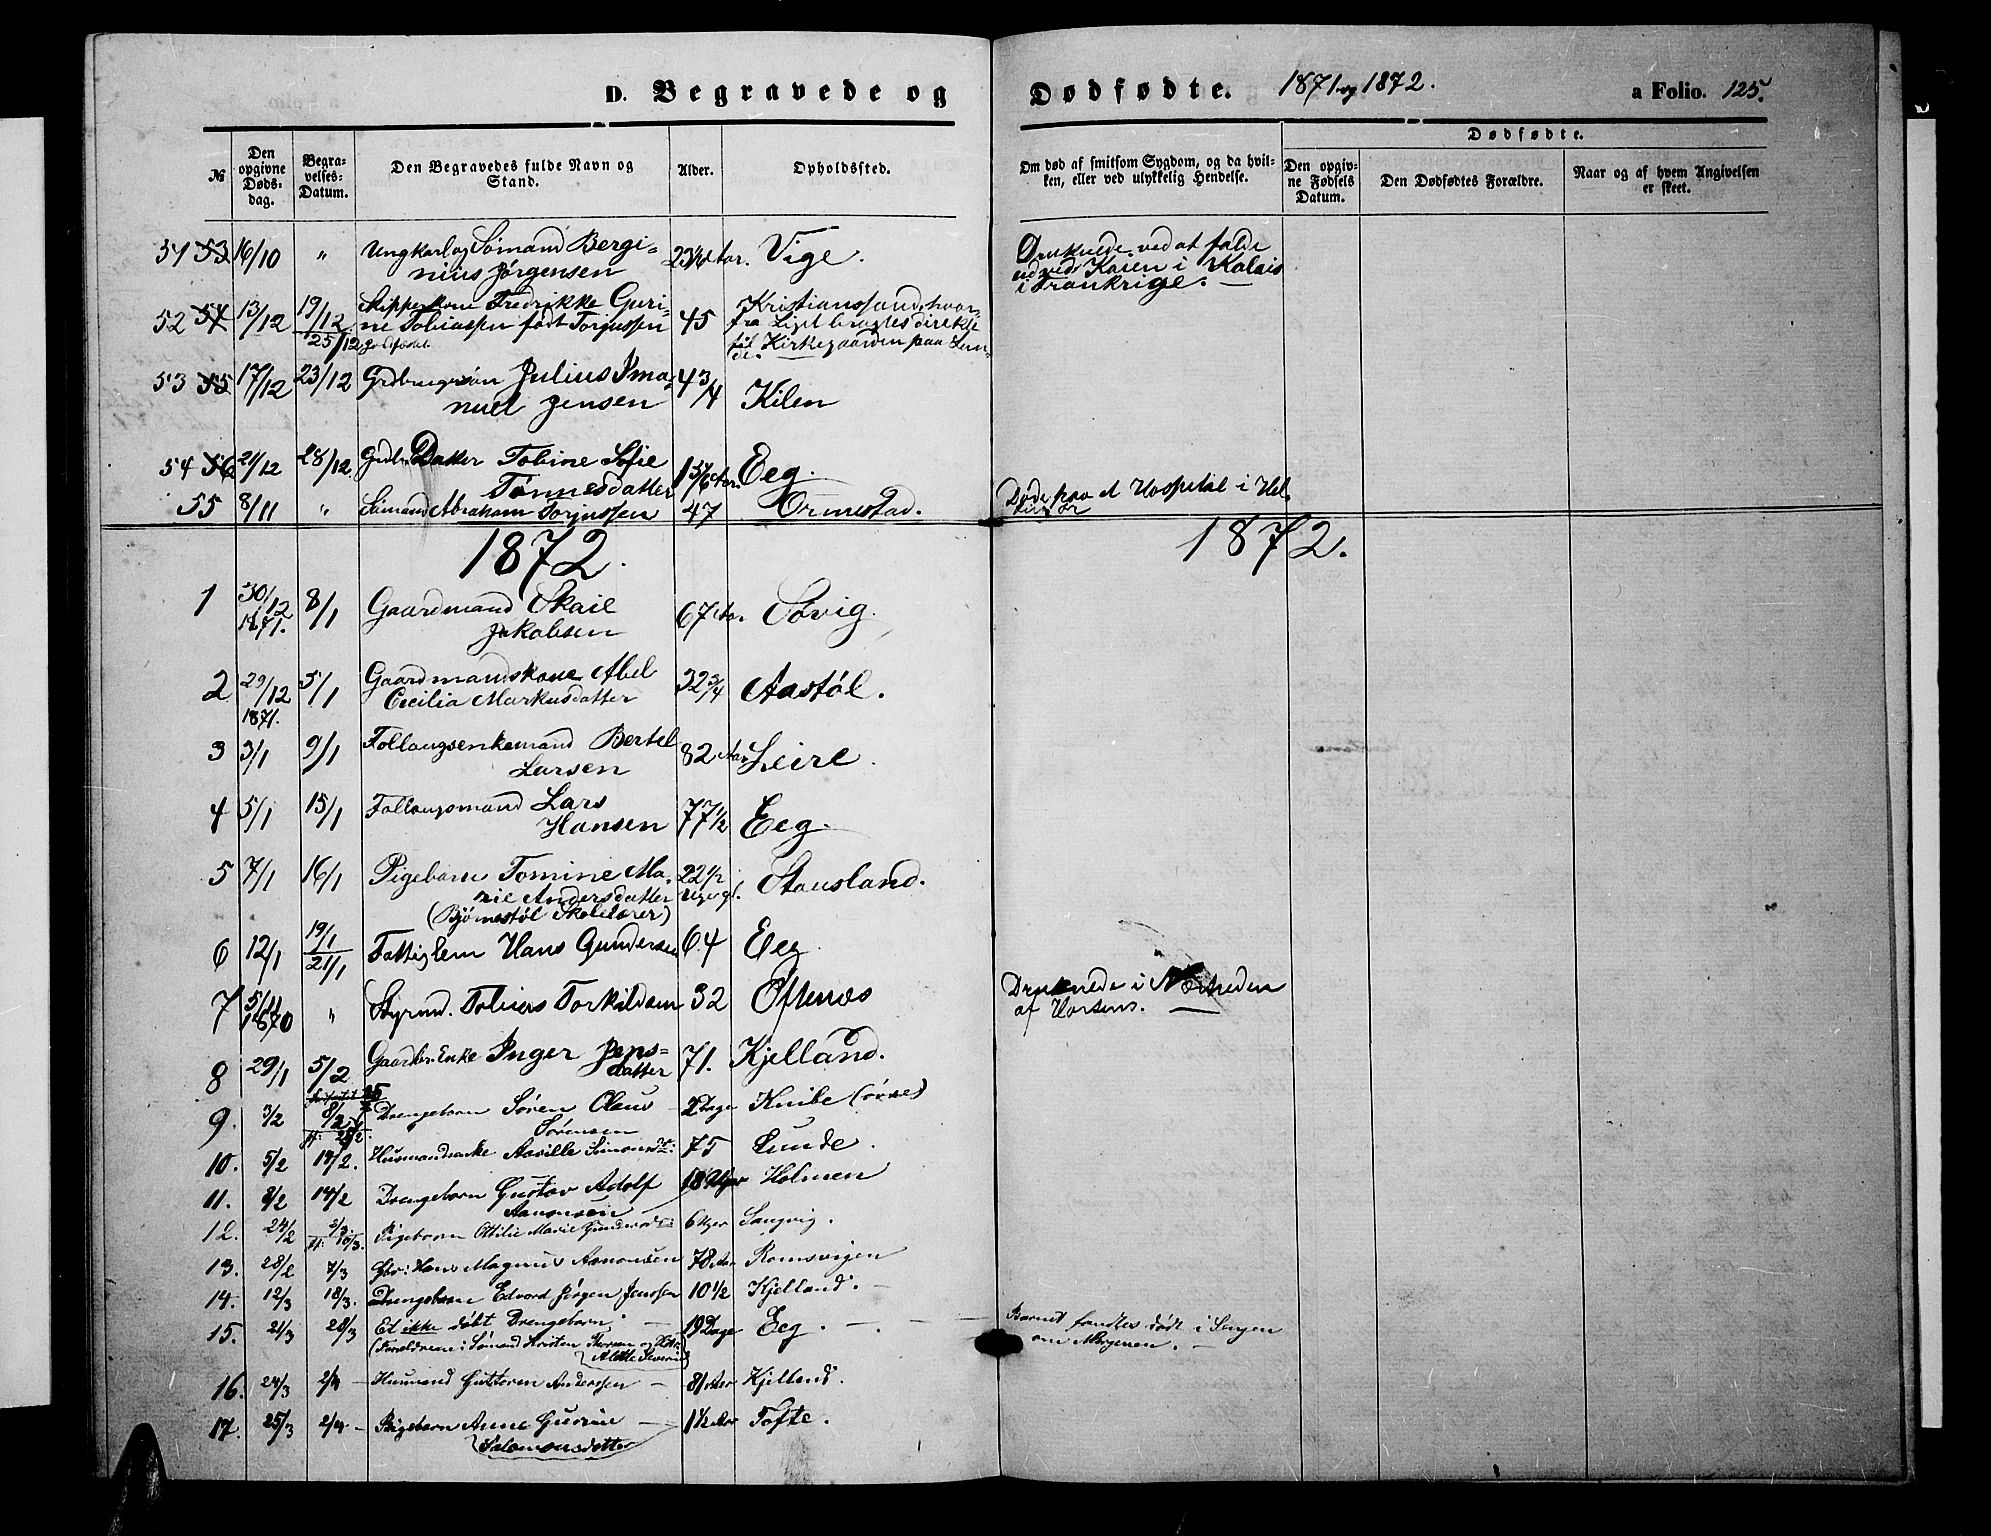 D. Begravede og Dødfødte. 1871 og 1872. a Folio. 125.
№ Den opgivne Døds-dag. Begra-velses-Datum. Den Begravedes fulde Navn og Stand. Alder. Opholdssted. Om død af smitsom Sygdom, og da hvil-ken, eller ved ulykkelig Hendelse. Dødfødte. Den opgiv-ne Fødsels Datum. Den Dødfødtes Forældre. Naar og af hvem Angivelsen er skeet.
51 53 16/10 " Ungkarl og Sømand Bergi- Vige. Druknede ved at falde
nius Jørgensen ud ved Kaien i Kalais
i Frankrige. —
52 54 13/12 19/12 Skipperkone Fredrikke Guri- 45 Kristianssand, hvor-
25/12 ne Tobiassen født Torjussen fra Liget bragtes direkte
til Kirkegaarden paa Lun-
de.
53 55 17/12 23/12 Grdbrugersøn Julius Ima- 4 3/4 Kilen
nuel Jensen
54 56 21/12 28/12 Grdbr. Datter Tobine Sofie 1 5/6 Aar. Eeg.
Tønnesdatter
55 8/11 " Sømand Abraham Torjussen 47 Ormestad. Døde paa et Hospital i Hel-
singør
1872. 1872.
1 30/12 1871. 8/1 Gaardmand Skaie 67 Aar. Søvig.
Jakobsen
2 29/12 1871. 5/1 Gaardmandskone Abel 32 3/4 Aastøl.
Cecilia Markusdatter
3 3/1 9/1 Follaugsenkemand Bertel 82 Aar Leire.
Larsen
4 5/1 15/1 Follaugsmand Lars 77 1/2 Eeg.
Hansen
5 7/1 16/1 Pigebarn Tomine Ma- 22 1/2 Uger gl. Stausland.
rie Andersdatter
(Bjørnestøl Skolelærer)
6 12/1 19/1 21/1 Fattiglem Hans Gundersen 64 Eeg
7 5/11 1870 " Styrmd. Tobias Torkildsen 32 Oftenæs Druknede i Nærheden
af Horsens. —
8 29/1 5/2 Gaardbr. Enke Inger Jens- 71. Kjelland.
datter
9. 3/2 8/2 Drengebarn Søren Olaus 2 Dage Knibe (Øvre)
25/2. Sørensen
10. 5/2 14/2. Husmandsenke Aasille Simonsdt: 75 Lunde.
11. 8/2 14/2 Drengebarn Gustav Adolf 18 Uger Holmen
Aanonsen
12. 24/2 2/3 10/3. Pigebarn Ottilie Marie Gundersdt: 6 Uger Langvig.
13. 28/2 7/3 Gbr: Hans Magnus Aanonsen 78 Aar Romsvigen
14. 12/3 18/3. Drengebarn Edvard Jørgen Jenssen 10 1/2 Kjelland. —
15. 21/3 28/3 Et ikke døbt Drengebarn. 19 Dage Eeg. — Barnet fandtes dødt i Sengen
(Forældrene: Sømand Kristen Iversen og Hst: om Morgenen. —
Alette Severine)
16. 24/3 2/4 — Husmand Guttorm Anderssen — 81 Aar Kjelland.
17. 25/3 2/4 — Pigebarn Anne Gurine — 1 1/2 Aar Tofte.
Salomonsdatter